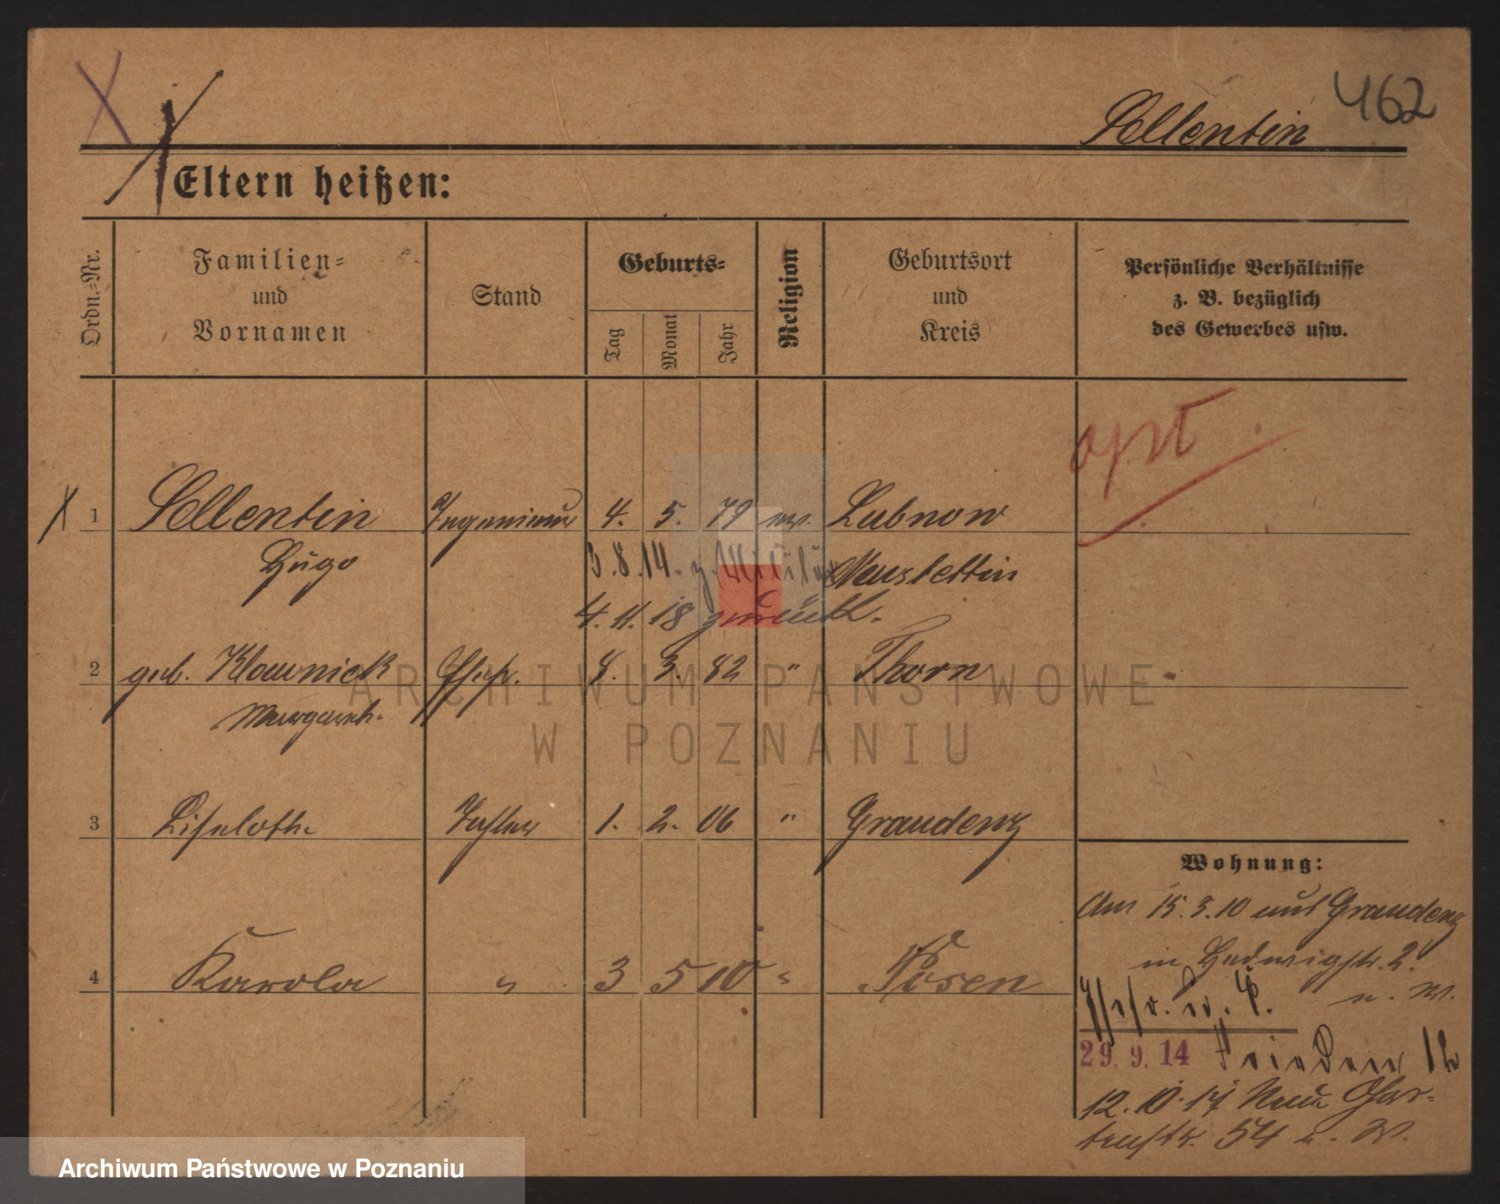 462
Sellentin
Eltern heißen:
Ordn.-Nr.
Familien-
und
Vornamen
Stand
Geburts-
Tag
Monat
Jahr
Religion
Geburtsort
und
Kreis
Persönliche Verhältnisse
z. B. bezüglich
des Gewerbes usw.
1 Sellentin Ingenieur 4. 5. 79 ev. Lubnow
Hugo 3.8.14. z. Militär Neustettin
4.11.18 zurück.
2 geb. Klawnick Ehefr. 8. 3. 82 " Thorn
Margareth.
3 Liselotte Tochter 1. 2. 06 " Graudenz
4 Karola " 3 5 10 " Posen
Wohnung:
Am 15.3.10 aus Graudenz
in Hedwigstr. 2.
u. W.
29. 9. 14
12.10.17 Neue Gar-
tenstr. 54 u. W.
ARCHIWUM PAŃSTWOWE
W POZNANIU
Archiwum Państwowe w Poznaniu